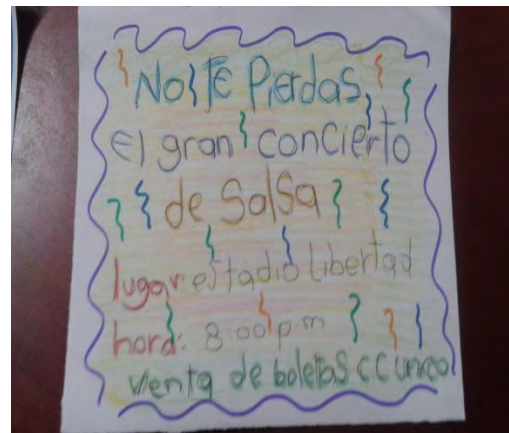 No Te Pierdas
el gran concierto
de Salsa
lugar estadio libertad
hora: 8:00 pm
venta de boletas CC unico